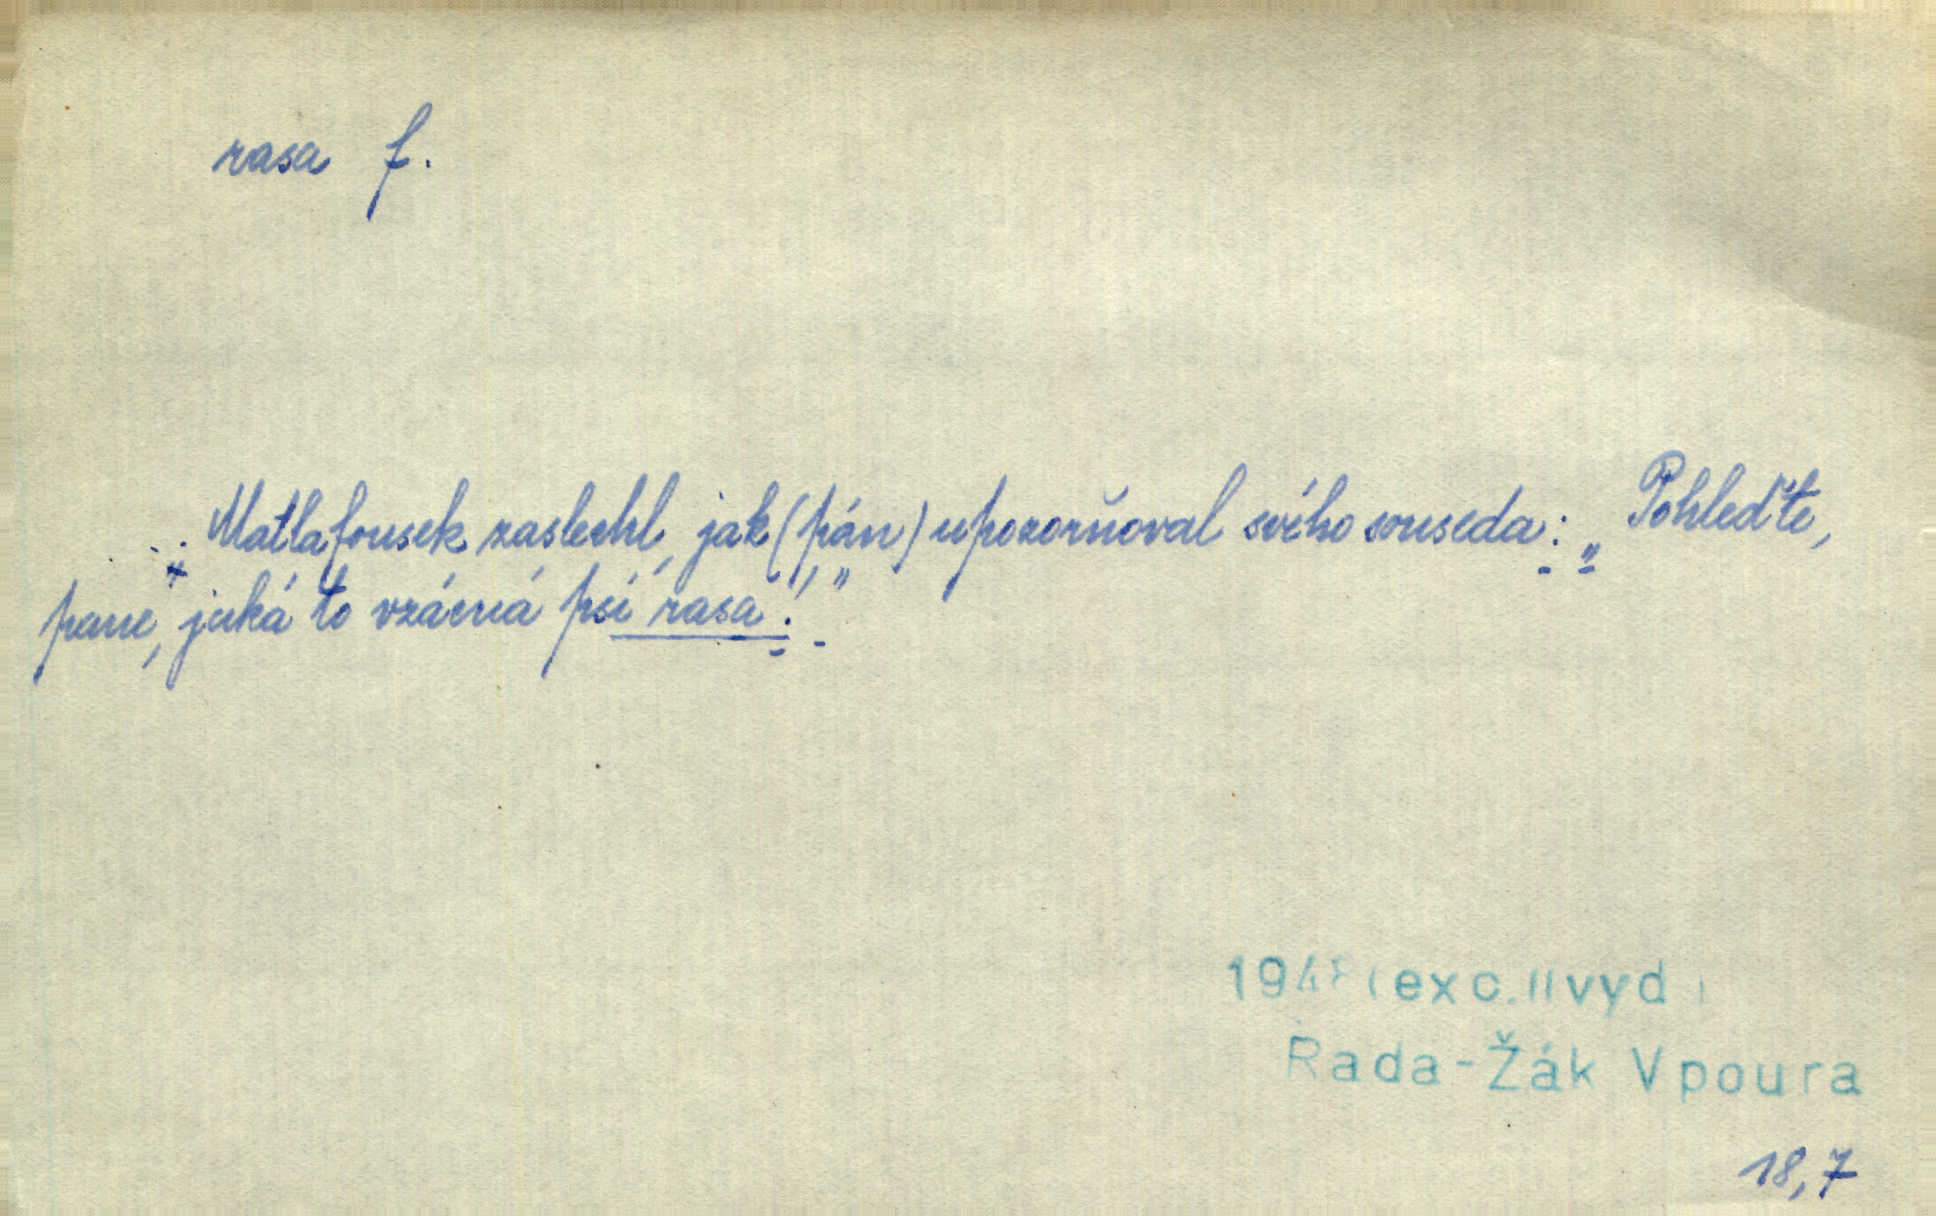 rasa f.
Matlafousek zaslechl, jak (pán) upozorňoval svého souseda: „Pohleďte,
pane, jaká to vzácná psí rasa!"
(exc. II vyd)
Rada-Žák Vpoura
18,7